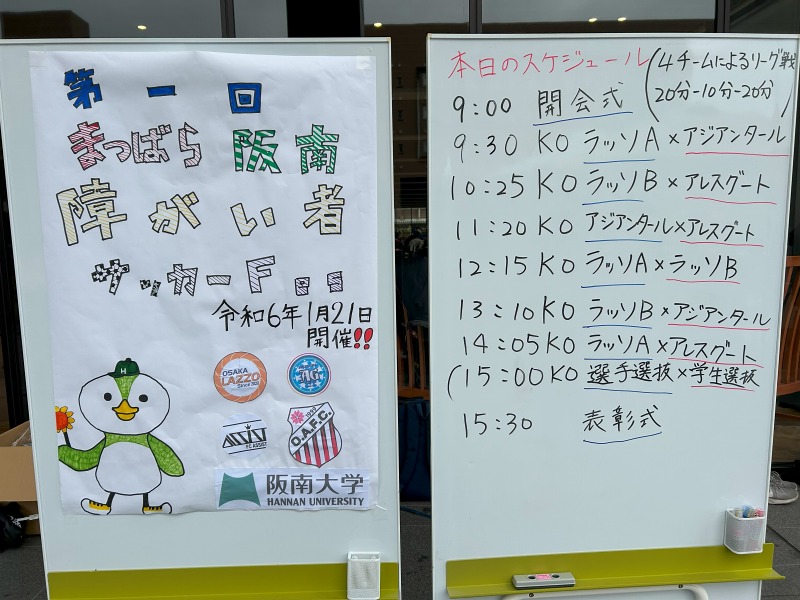 第一回
まつばら阪南
障がい者
サッカーF．．
令和6年1月21日
開催!!
H
OSAKA
LAZZO
O.A.F.C.
阪南大学
HANNAN UNIVERSITY
本日のスケジュール
(4チームによるリーグ戦
20分-10分-20分
9:00 開会式
9:30 KO ラッソA×アジアンタール
10:25 KO ラッソB×アレスグート
11:20 KO アジアンタール×アレスグート
12:15 KO ラッソA×ラッソB
13:10 KO ラッソB×アジアンタール
14:05 KO ラッソA×アレスグート
(15:00 KO 選手選抜×学生選抜
15:30 表彰式